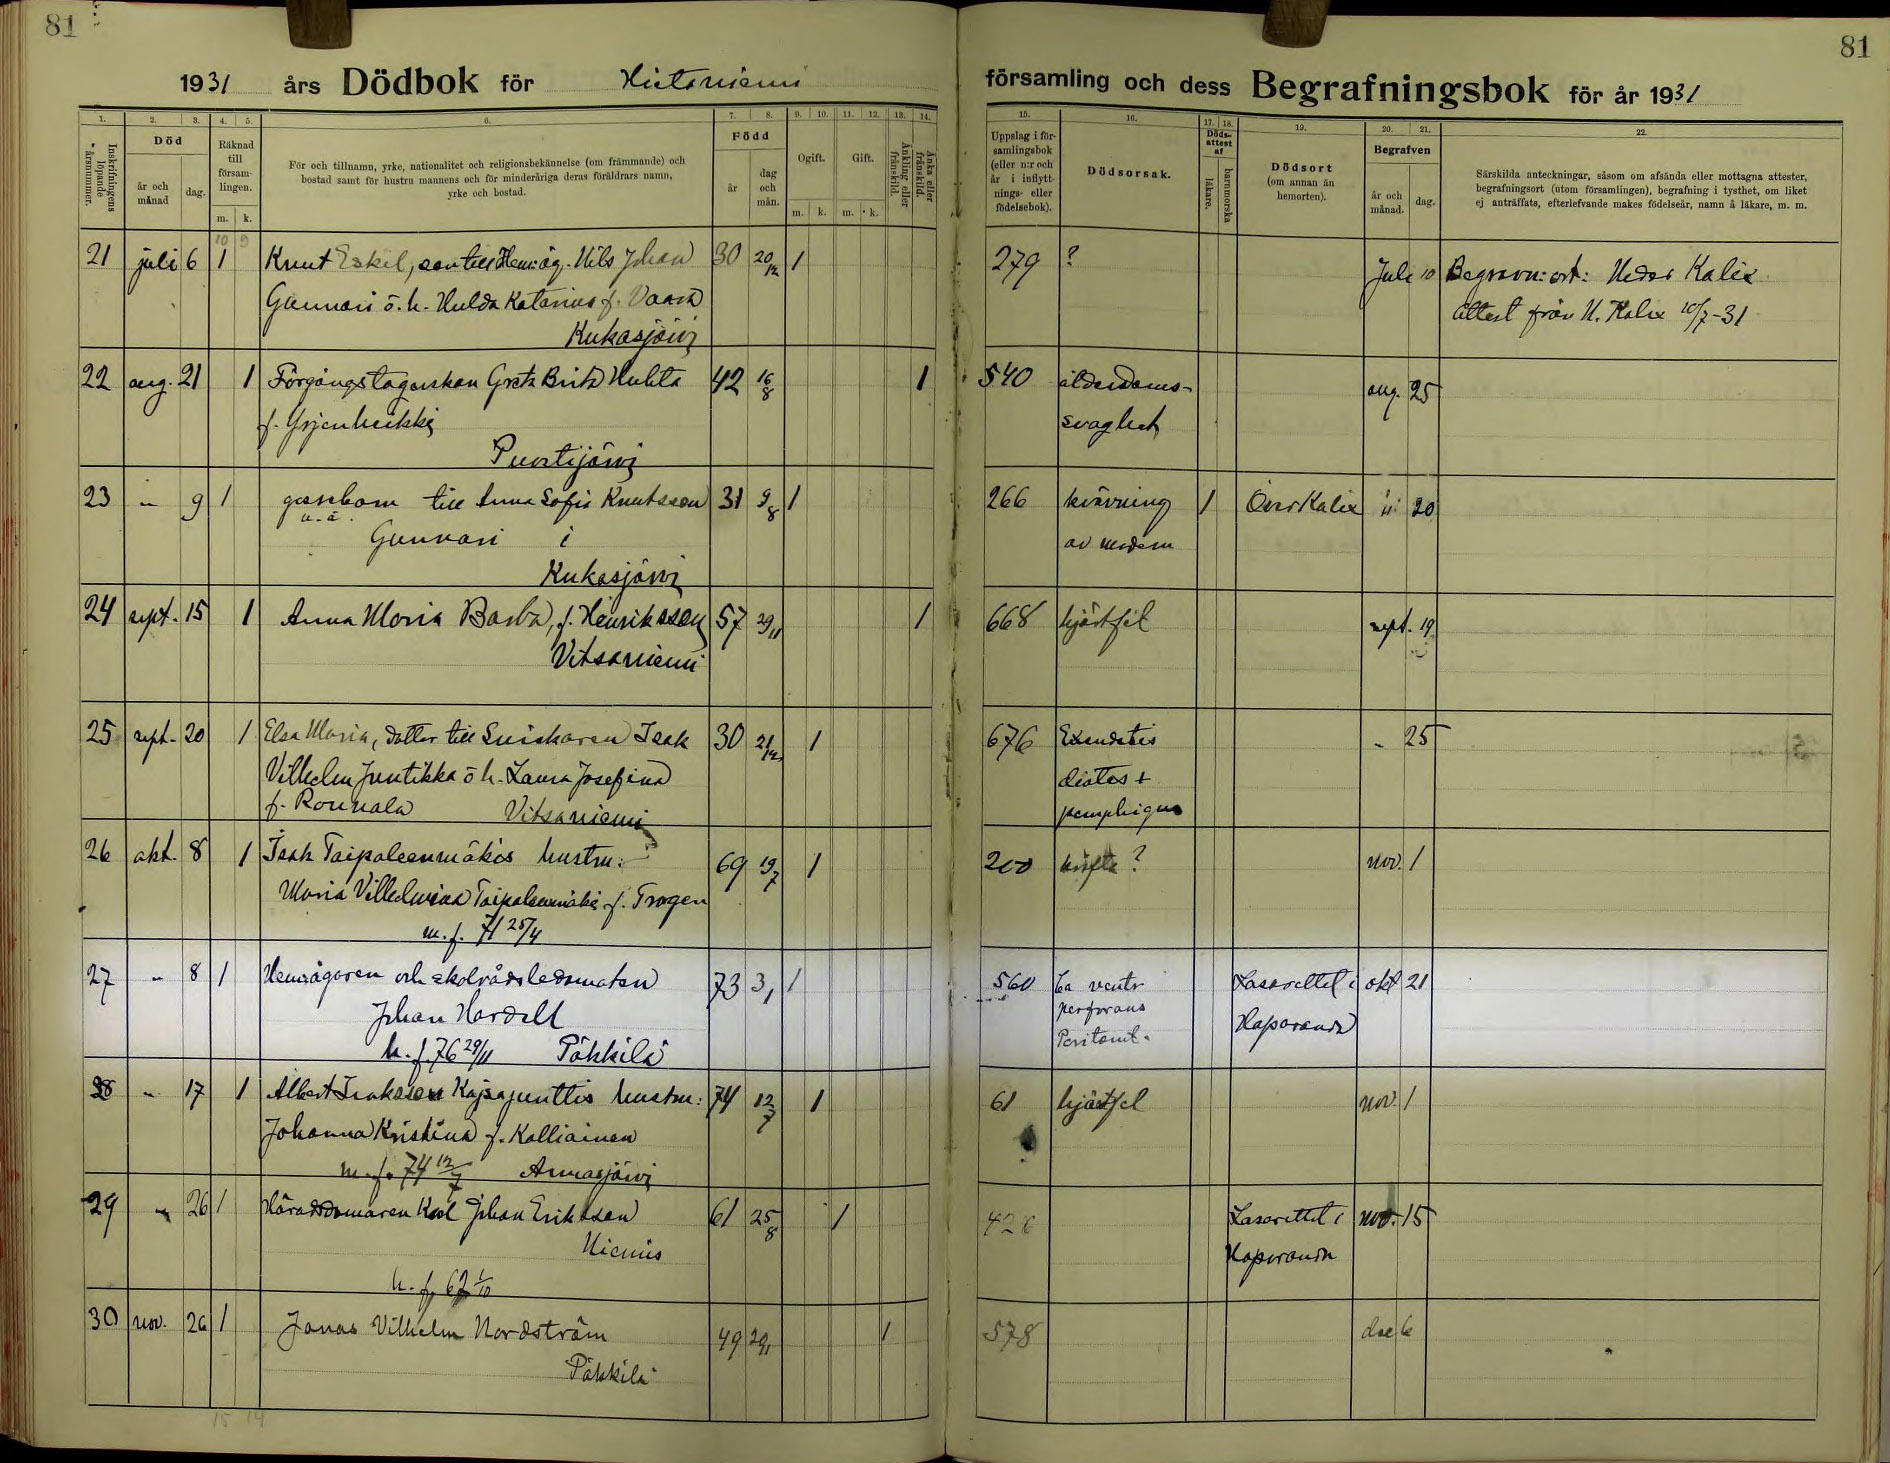 81
81
1931 års Dödbok för Hietaniemi
församling och dess Begrafningsbok för år 1931
1. 2. 3. 4. 5. 6. 7. 8. 9. 10. 11. 12. 13. 14.
15. 16. 17. 18. 19. 20. 21. 22.
Inskrifningens löpande årsnummer.
Död
år och månad
dag.
Räknad till församlingen.
m. k.
För och tillnamn, yrke, nationalitet och religionsbekännelse (om främmande) och
bostad samt för hustru mannens och för minderåriga deras föräldrars namn,
yrke och bostad.
Född
år
dag och mån.
Ogift.
m. k.
Gift.
m. k.
Änkling eller frånskild.
Änka eller frånskild.
Uppslag i församlingsbok (eller n:r och år i inflyttnings- eller födelsebok).
Dödsorsak.
Dödsattest af
läkare.
barnmorska
Dödsort
(om annan än hemorten).
Begrafven
år och månad.
dag.
Särskilda anteckningar, såsom om afsända eller mottagna attester,
begrafningsort (utom församlingen), begrafning i tysthet, om liket
ej anträffats, efterlefvande makes födelseår, namn å läkare, m. m.
10 9
21 juli 6 1 Knut Eskil, son till Hem:äg. Nils Johan 30 20/12 1 279 ? Juli 10 Begravn:ort: Neder Kalix
Gunnari o. h. Hulda Katarina f. Vaara attest från N. Kalix 10/7-31
Kukasjärvi
22 aug. 21 1 Förgångstagerskan Greta Brita Huhta 42 16/8 1 540 ålderdoms- aug. 25
f. Yrjenheikki svaghet
Puostijärvi
23 " 9 1 gossebarn till Anna Sofia Knutsson 31 9/8 1 266 kvävning 1 Över Kalix " 20
u. ä. Gunnari i av modern
Kukasjärvi
24 sept. 15 1 Anna Maria Barba, f. Henriksson 57 29/11 1 668 hjärtfel sept. 19
Vitsaniemi
25 sept. 20 1 Elsa Maria, dotter till Snickaren Isak 30 21/12 1 676 Exsudativ " 25
Vilhelm Juntikka o h. Laura Josefina diates +
f. Rounala Vitsaniemi pemphigus
26 okt. 8 1 Isak Taipaleenmäkis hustru: 69 19/7 1 200 kräfta ? nov. 1
Maria Vilhelmina Taipaleenmäki f. Trogen
m. f. 71 25/4
27 " 8 1 Hemägaren och skolrådsledamoten 73 3/1 1 560 Ca ventr Lasarettet i okt 21
Johan Hardell perforans Haparanda
h. f. 76 29/11 Päkkilä Peritonit.
28 " 17 1 Albert Isaksson Kajsajunttis hustru: 74 12/7 1 61 hjärtfel nov. 1
Johanna Kristina f. Kalliainen
m. f. 74 12/7 Armasjärvi
29 " 26 1 Häradsdomaren Karl Johan Eriksson 61 25/8 1 426 Lasarettet i nov. 15
Niemis Haparanda
h. f. 62 1/10
30 nov. 26 1 Jonas Vilhelm Nordström 49 29/11 1 578 dec 6
Päkkilä
15 14